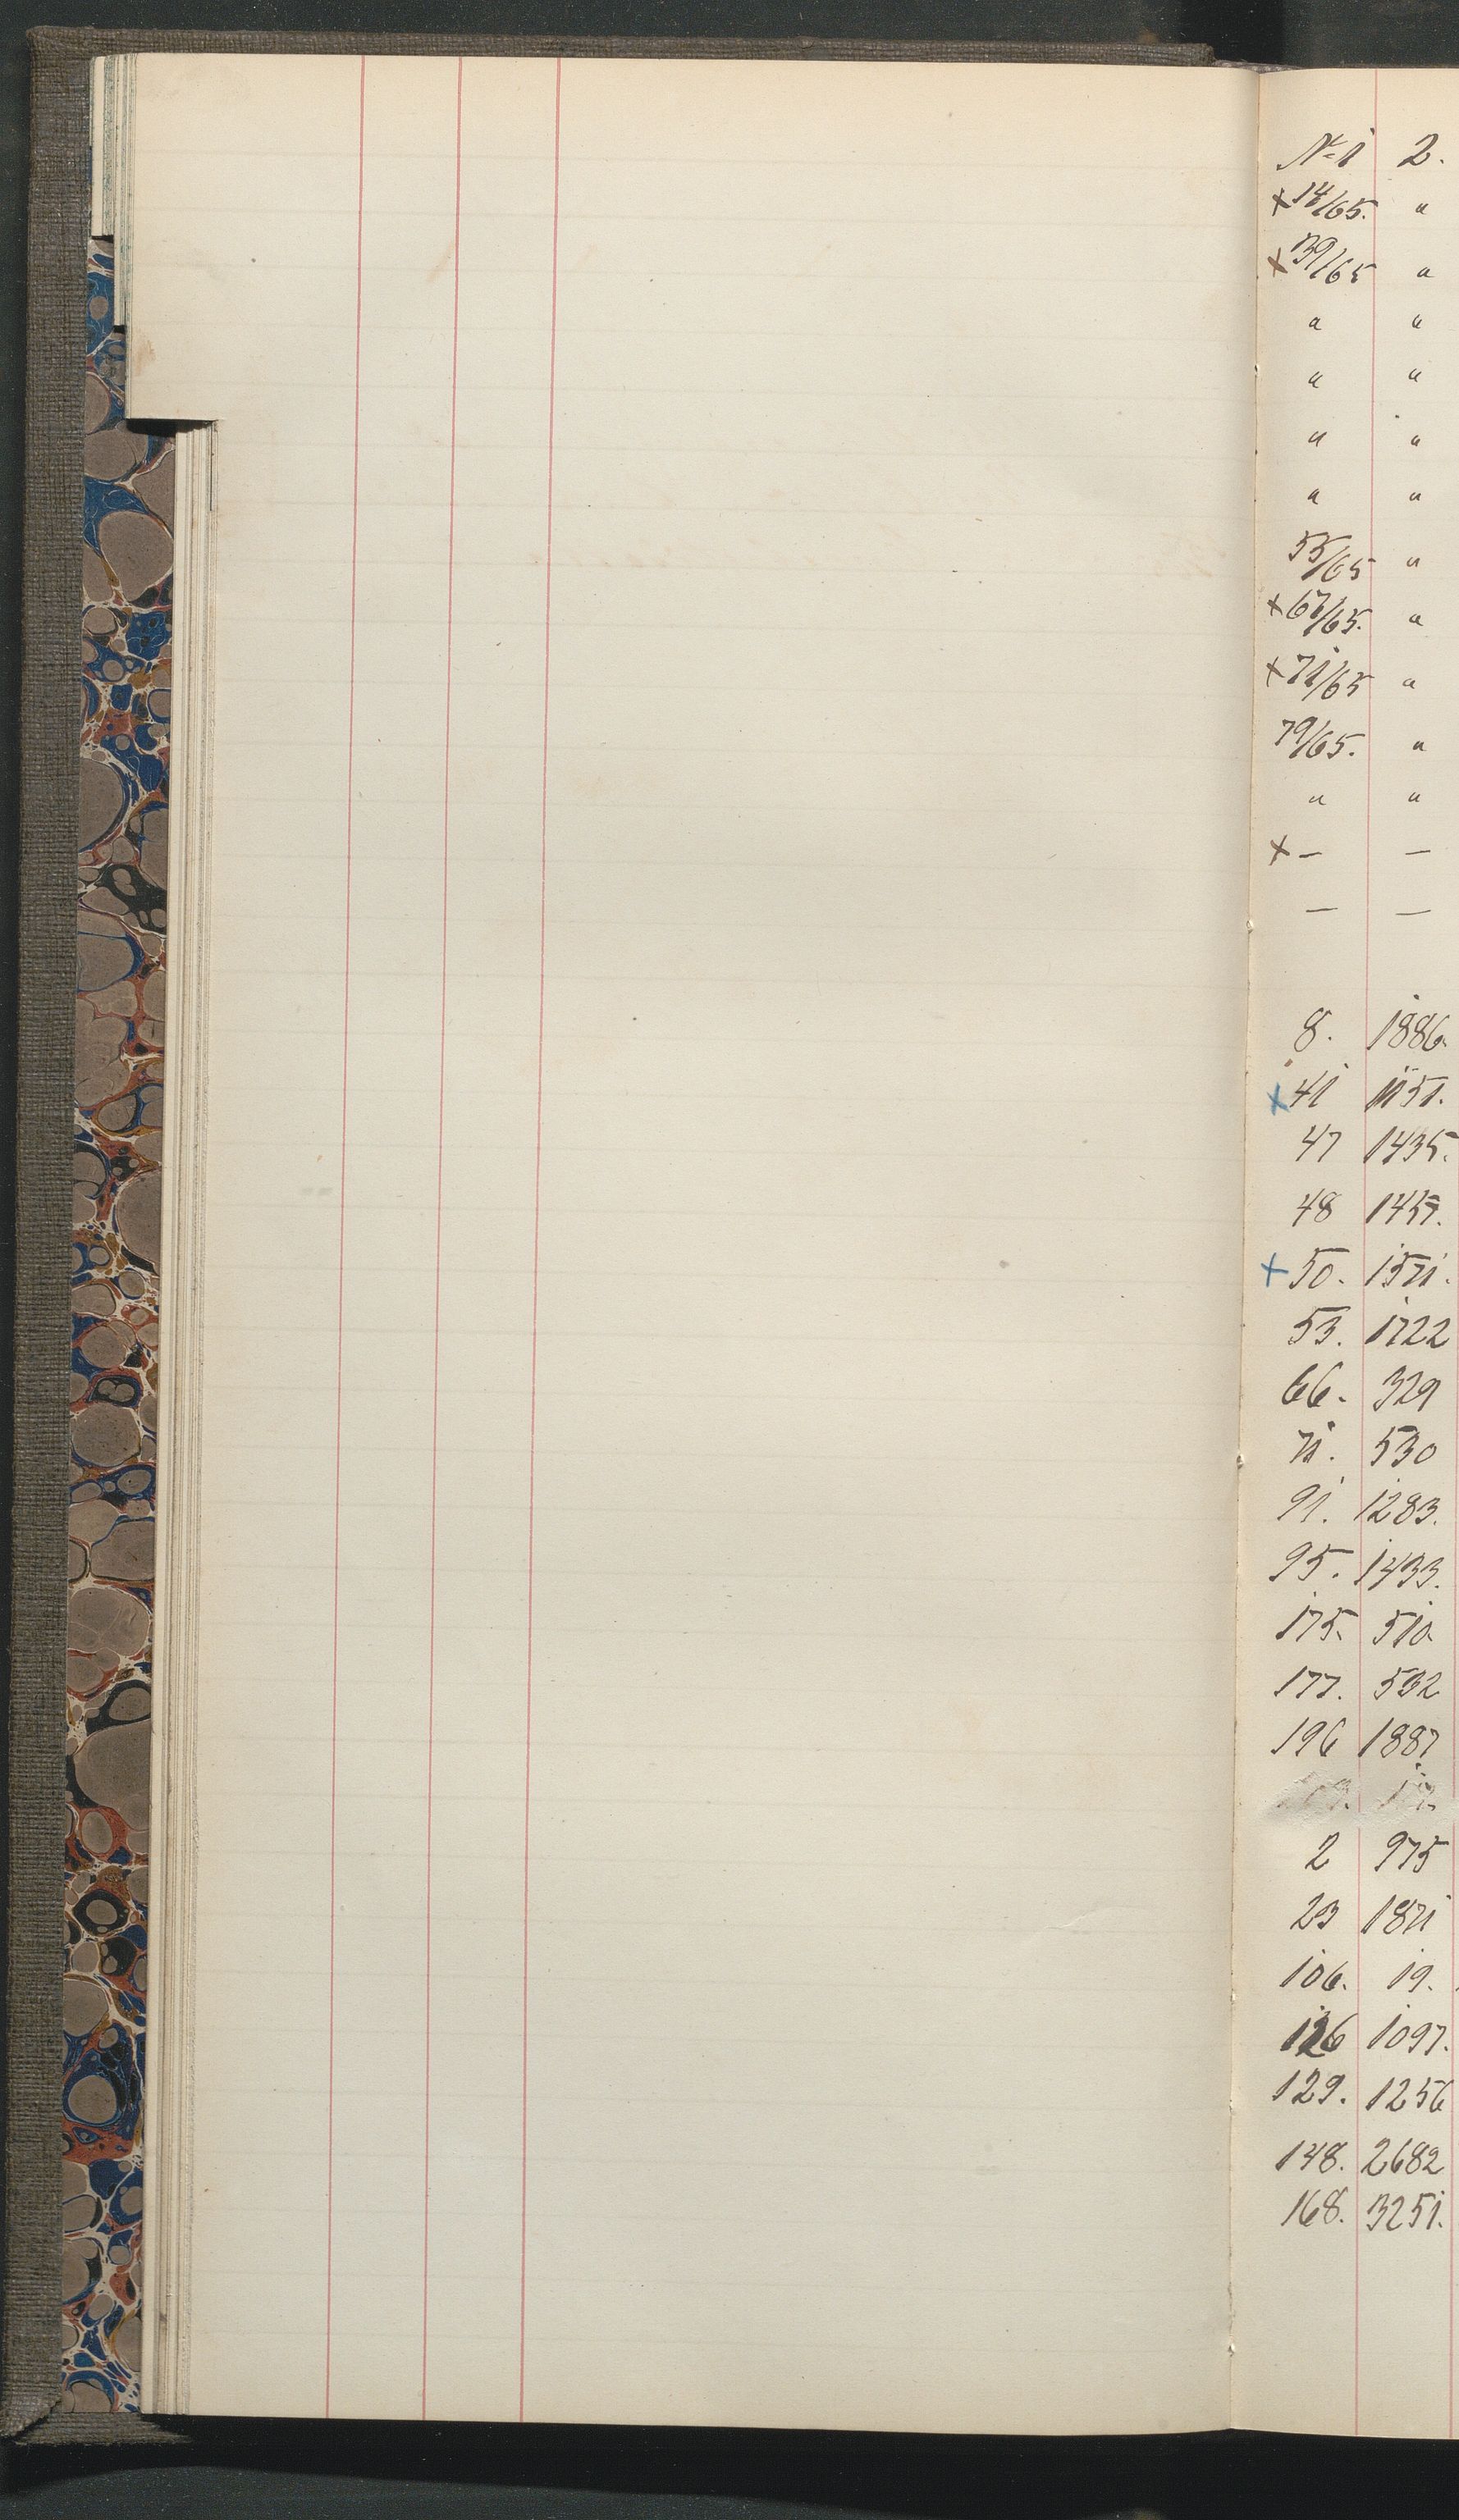 № 1 2.
x 14/65. "
x 39/65 "
" "
" "
" "
" "
55/65 "
x 67/65. "
x 71/65 "
79/65. "
" "
x — —
— —
8. 1886.
x 41 1151.
47 1435.
48 1457.
x 50. 1571.
53. 1722
66. 329
71. 530
91. 1283.
95. 1433.
175. 510.
177. 532
196 1887
2 975
23 1871
106. 19.
126 1097.
129. 1256
148. 2682
168. 3251.